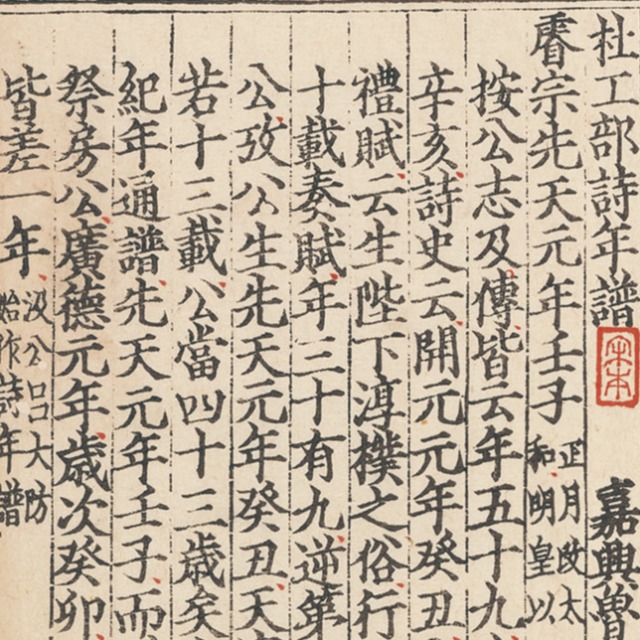 杜工部詩年譜 嘉興魯
睿宗先天元年壬子 正月改太
和明皇以
按公志及傳皆云年五十九
辛亥詩史云開元元年癸丑
禮賦云生陛下淳樸之俗行
十載奏賦年三十有九逆筭
公攷公生先天元年癸丑天
若十三載公當四十三歲矣
紀年通譜先天元年壬子而
祭房公廣德元年歲次癸卯
皆差一年 汲公呂大防
始作詩年譜